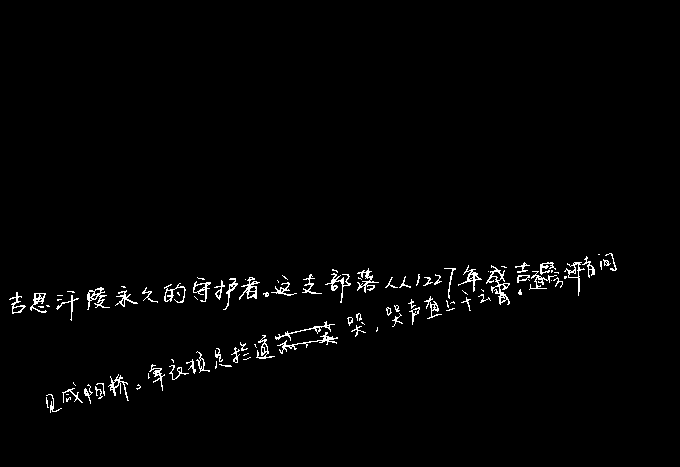 吉思汗陵永久的守护者。这支部落从1227年成吉思汗
见咸阳桥。牵衣顿足拦道哭，哭声直上干云霄。道旁过者问